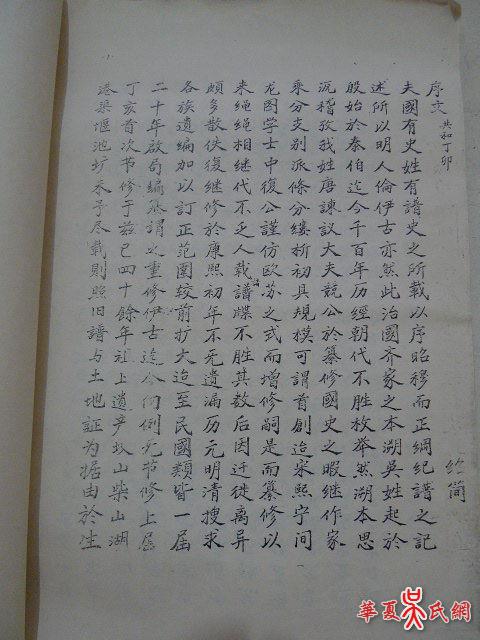 序文 共和丁卯
夫國有史姓有譜史之所載以序昭穆而正綱紀譜之記
述所以明人倫伊古亦然此治國齐家之本溯吳姓起於
殷始於泰伯迄今千百年历經朝代不胜枚举然溯本思
沉稽攷我姓唐諫议大夫兢公於纂修國史之暇継作家
乘分支别派條分缕析初具規模可謂首創迨宋熙宁间
龙图学士中復公謹仿欧苏之式而增修嗣是而纂修以
来绳绳相継代不乏人载譜牒不胜其数后因迁徙離异
頗多散佚復继修於康熙初年不无遺漏历元明清搜求
各族遺編加以訂正范围较前扩大迨至民國類皆一届
二十年啟局編纂謂之重修伊古迄今何例无节修上届
丁亥首次节修于兹已四十餘年祖上遗产坟山柴山湖
港渠堰池圹未予尽载则照旧譜与土地証为据由於生
約简
華夏吴氏網